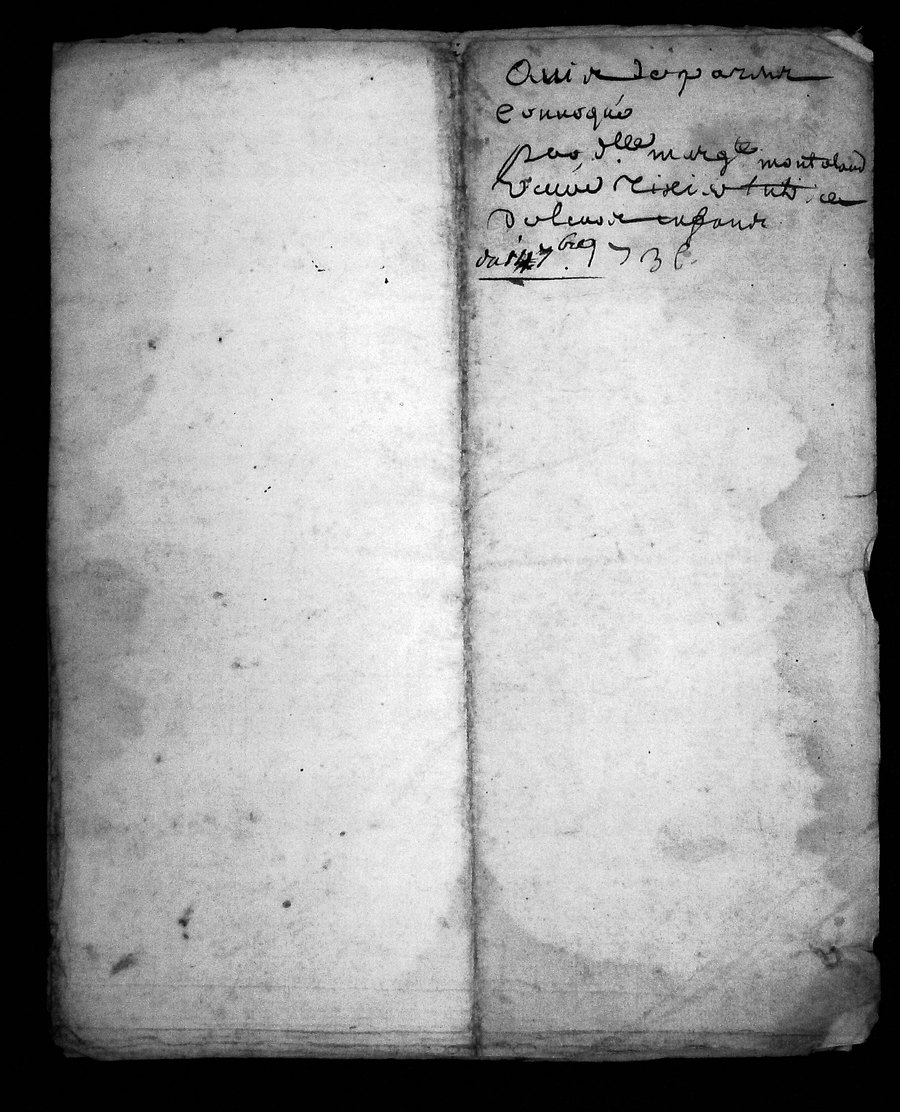 Avis de parens
Convoqué
par dlle margte montaland
veuve tixier tutrice
de leurs enfans
du 14 7bre 1736.